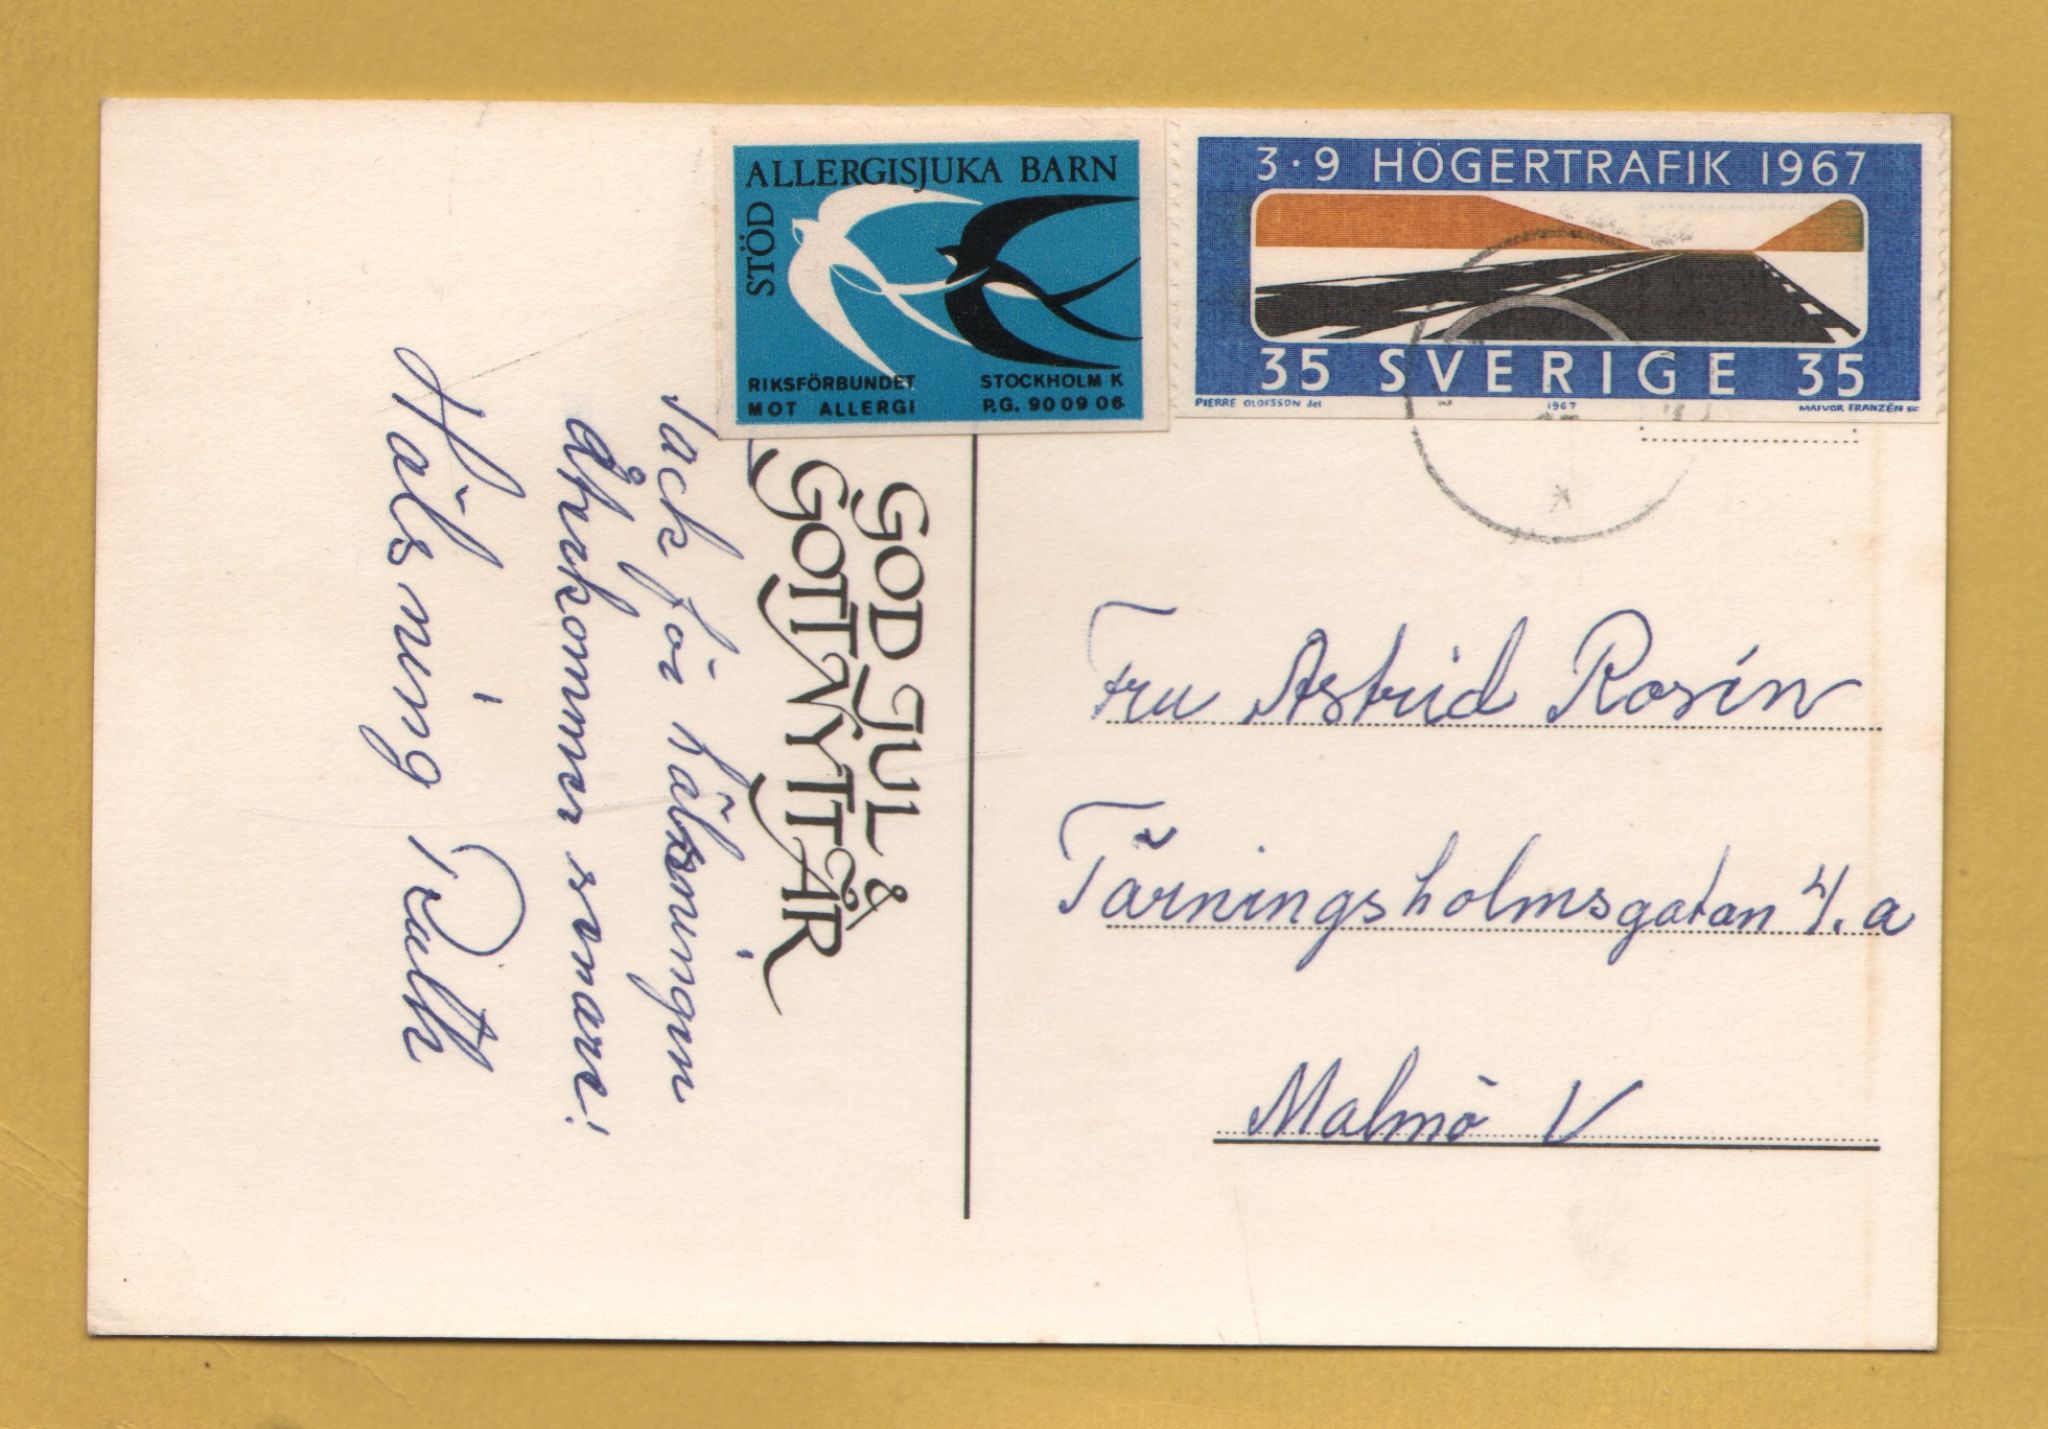 STÖD ALLERGISJUKA BARN
RIKSFÖRBUNDET STOCKHOLM K
MOT ALLERGI P.G. 90 09 06
3·9 HÖGERTRAFIK 1967
35 SVERIGE 35
PIERRE OLOFSSON del 1967 MAJVOR FRANZÉN sc
GOD JUL &
GOTT NYTT ÅR
Tack för hälsningen
Återkommer snare!
Hälsning Ruth
Fru Astrid Rosén
Tärningsholmsgatan 4.a
Malmö V